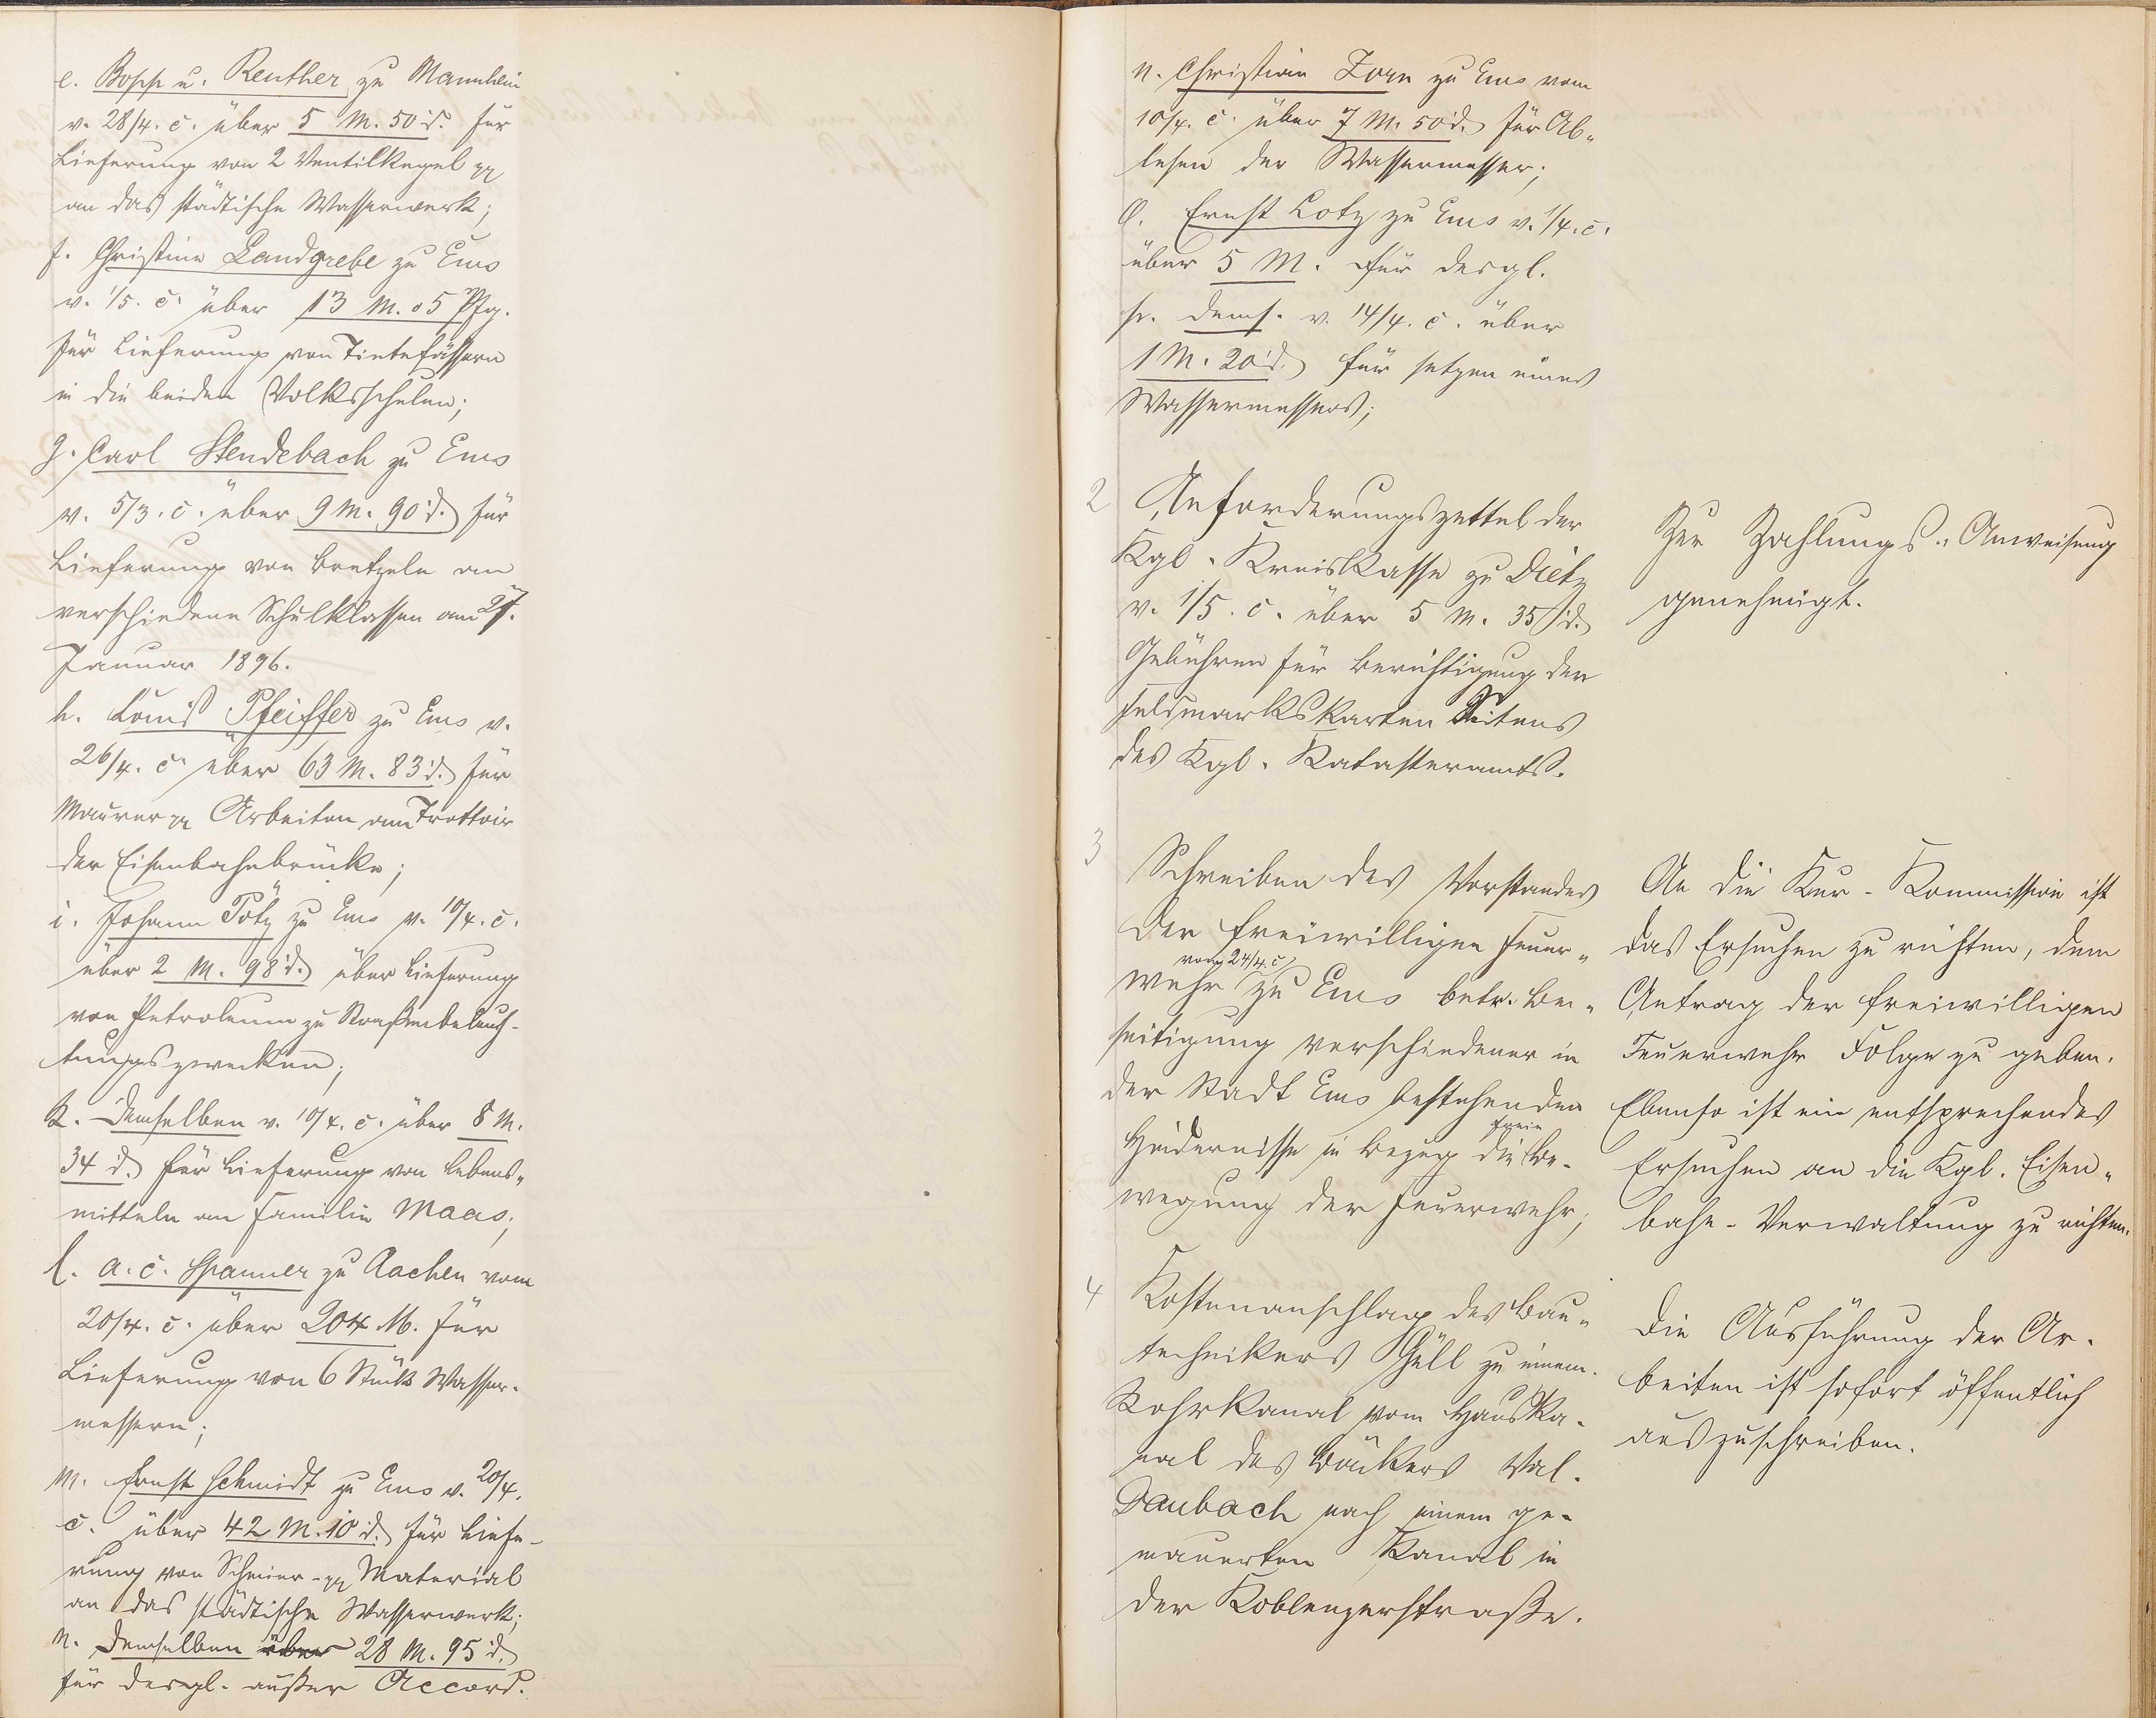 e. Bopp u. Reuther zu Mannheim
v. 28/4. c. über 5 M. 50 d. für
Lieferung von 2 Ventilkegel pp
an das städtische Wasserwerk;
f. Christine Landgrebe zu Ems
v. 1/5. c. über 13 M. 05 Pfg.
für Lieferung von Tintefässern
in die beiden Volksschulen;
g. Carl Stendebach zu Ems
v. 5/3. c. über 9 M. 90 d. für
Lieferung von Bretzeln an
verschiedene Schulklassen am 27.
Januar 1896.
h. Louis Pfeiffer zu Ems v.
26/4. c. über 63 M. 83 d. für
Maurer pp Arbeiten am Trottoir
der Eisenbahnbrücke;
i. Johann Pötz zu Ems v. 10/4. c.
über 2 M. 98 d. über Lieferung
von Petroleum zu Straßenbeleuch-
tungszwecken;
k. Demselben v. 10/4. c. über 8 M.
34 d. für Lieferung von Lebens-
mitteln an Familie Maas;
l. A. C. Spanner zu Aachen vom
20/4. c. über 204 M. für
Lieferung von 6 Stück Wasser-
messern;
m. Ernst Schmidt zu Ems v. 20/4.
c. über 42 M. 10 d. für Liefe-
rung von Schmier- pp Material
an das städtische Wasserwerk;
n. Demselben über 28 M. 95 d.
für desgl. außer Accord.
n. Christian Zorn zu Ems vom
10/4. c. über 7 M. 50 d. für Ab-
lesen der Wassermesser;
o. Ernst Lotz zu Ems v. 1/4. c.
über 5 M. für desgl.
p. dems. v. 14/4. c. über
1 M. 20 d. für setzen eines
Wassermessers;
2 Anforderungszettel der
Kgl. Kreiskasse zu Dietz
v. 1/5. c. über 5 M. 35 d.
Gebühren für Berichtigung der
Feldmarkskarten Seitens
des Kgl. Katasteramts.
Zur Zahlungs-Anweisung
genehmigt.
3 Schreiben des Vorstandes
der freiwilligen Feuer-
vom 24/4. c.
wehr zu Ems betr. Be-
seitigung verschiedener in
der Stadt Ems bestehenden
freie
Hindernisse in Bezug die Be-
wegung der Feuerwehr;
An die Kur-Kommission ist
das Ersuchen zu richten, dem
Antrag der freiwilligen
Feuerwehr Folge zu geben.
Ebenso ist ein entsprechendes
Ersuchen an die Kgl. Eisen-
bahn-Verwaltung zu richten.
4 Kostenanschlag des Bau-
technikers Güll zu einem
Rohrkanal vom Hauska-
nal des Bäckers Val.
Daubach nach einem ge-
mauerten Kanal in
der Koblenzerstraße.
Die Ausführung der Ar-
beiten ist sofort öffentlich
auszuschreiben.